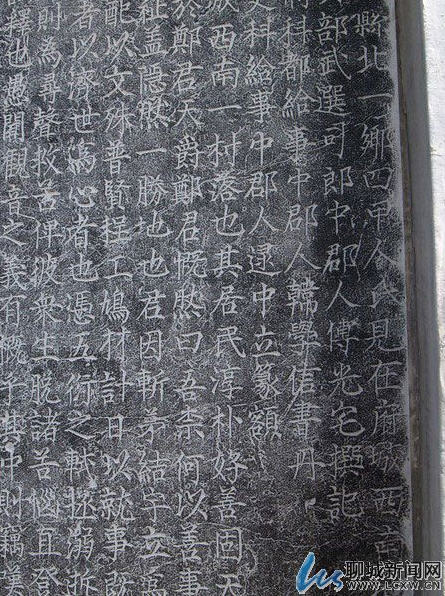 縣北一鄉四甲人氏見在府城西
部武選司郎中郡人傅光宅撰記
科都給事中郡人韓學信書丹
科給事中郡人逯中立篆額
西南一村落也其居民淳朴好善固天
於鄭君天爵鄭君慨然曰吾柰何以善事
祉盖隠然一勝地也君因斬茅結宇立
配以文殊普賢程工鳩材計日以就事
者以濟世爲心者也憑五衍之軾拯溺逝
則爲尋聲救苦俾彼衆生脱諸苦惱直登
釋也愚聞觀音之義有慨于其中則竊
聊城新闻网
WWW.LCXW.CN